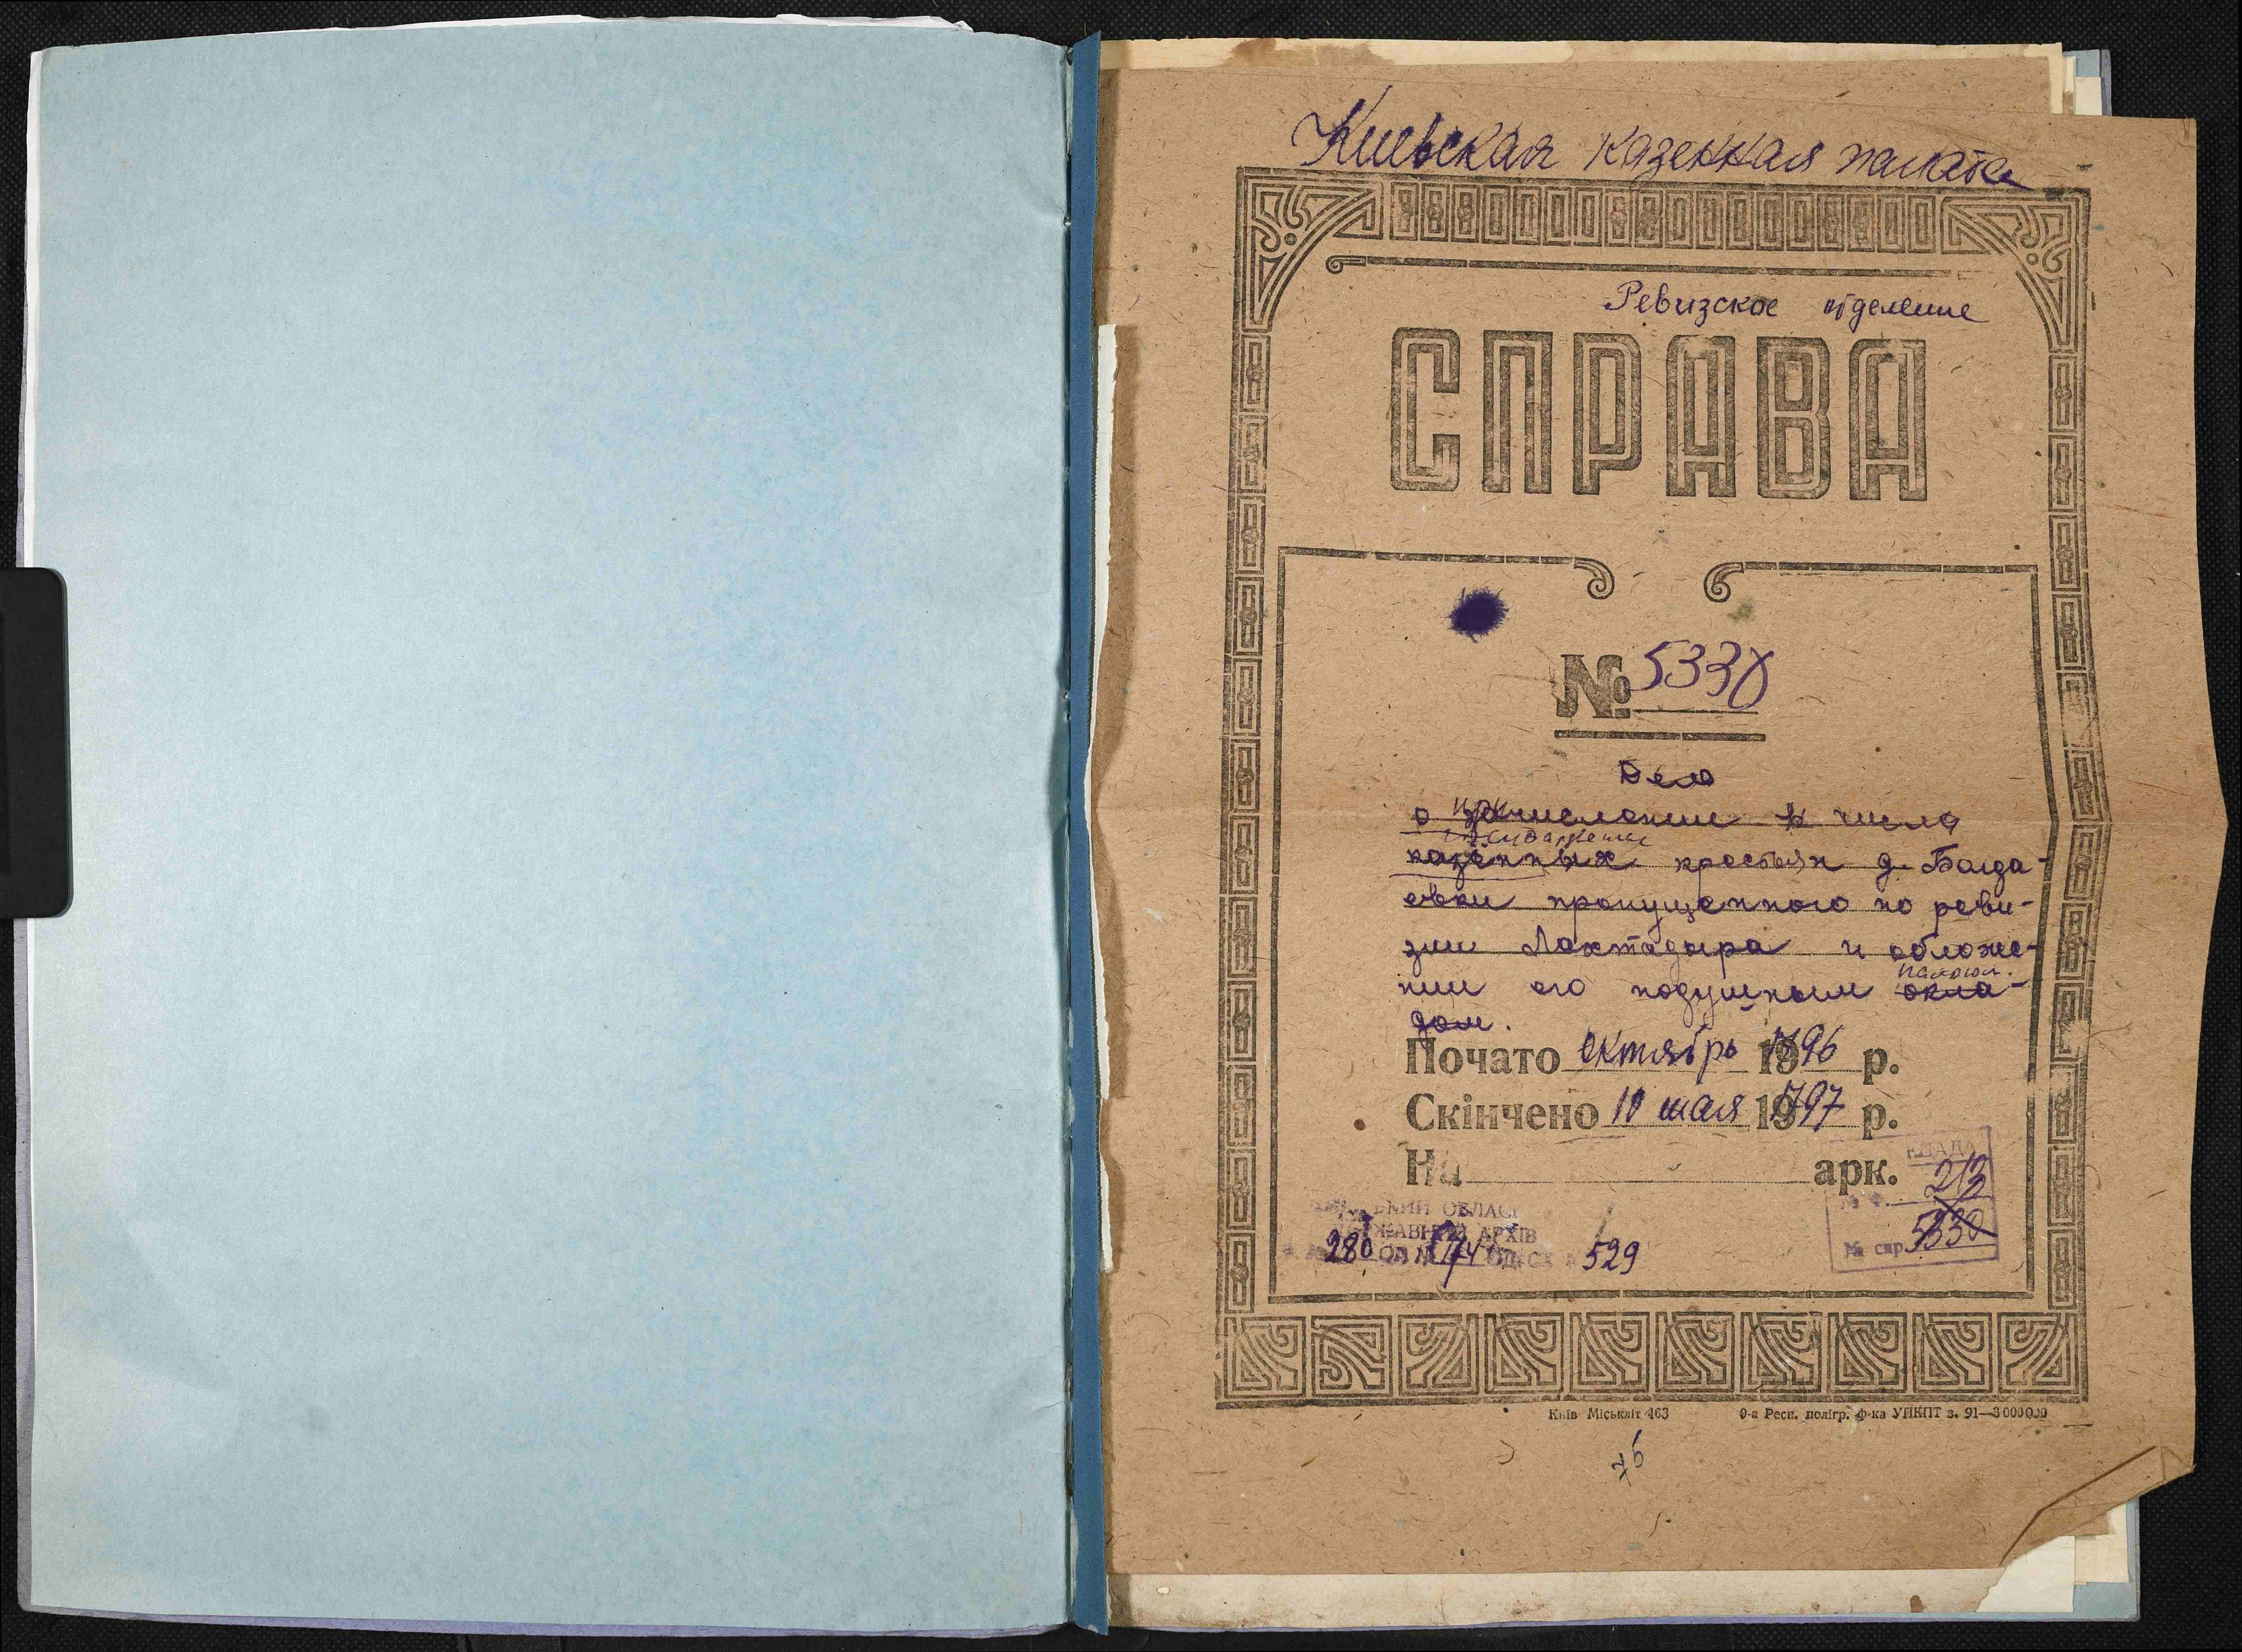 Киевская казенная палата
Ревизское отделение
СПРАВА
№ 5330
Дело
о зачислении в числа
казенных крестьян д. Богда-
евки пропущенного по реви-
зии Локтадыра и обложе-
налогом.
нии его подушным окла-
дом.
Почато октябрь 1796 р.
Скінчено 10 мая 1797 р.
На арк.
КЦАДА
213
5330
№ спр.
ОБЛАС
ДЕРЖАВНИЙ АРХІВ
280 ОП № 174 ОД. СХ 529
Київ Міськліт 463 9-а Респ. полігр. ф-ка УПКПТ з. 91—3 000 000